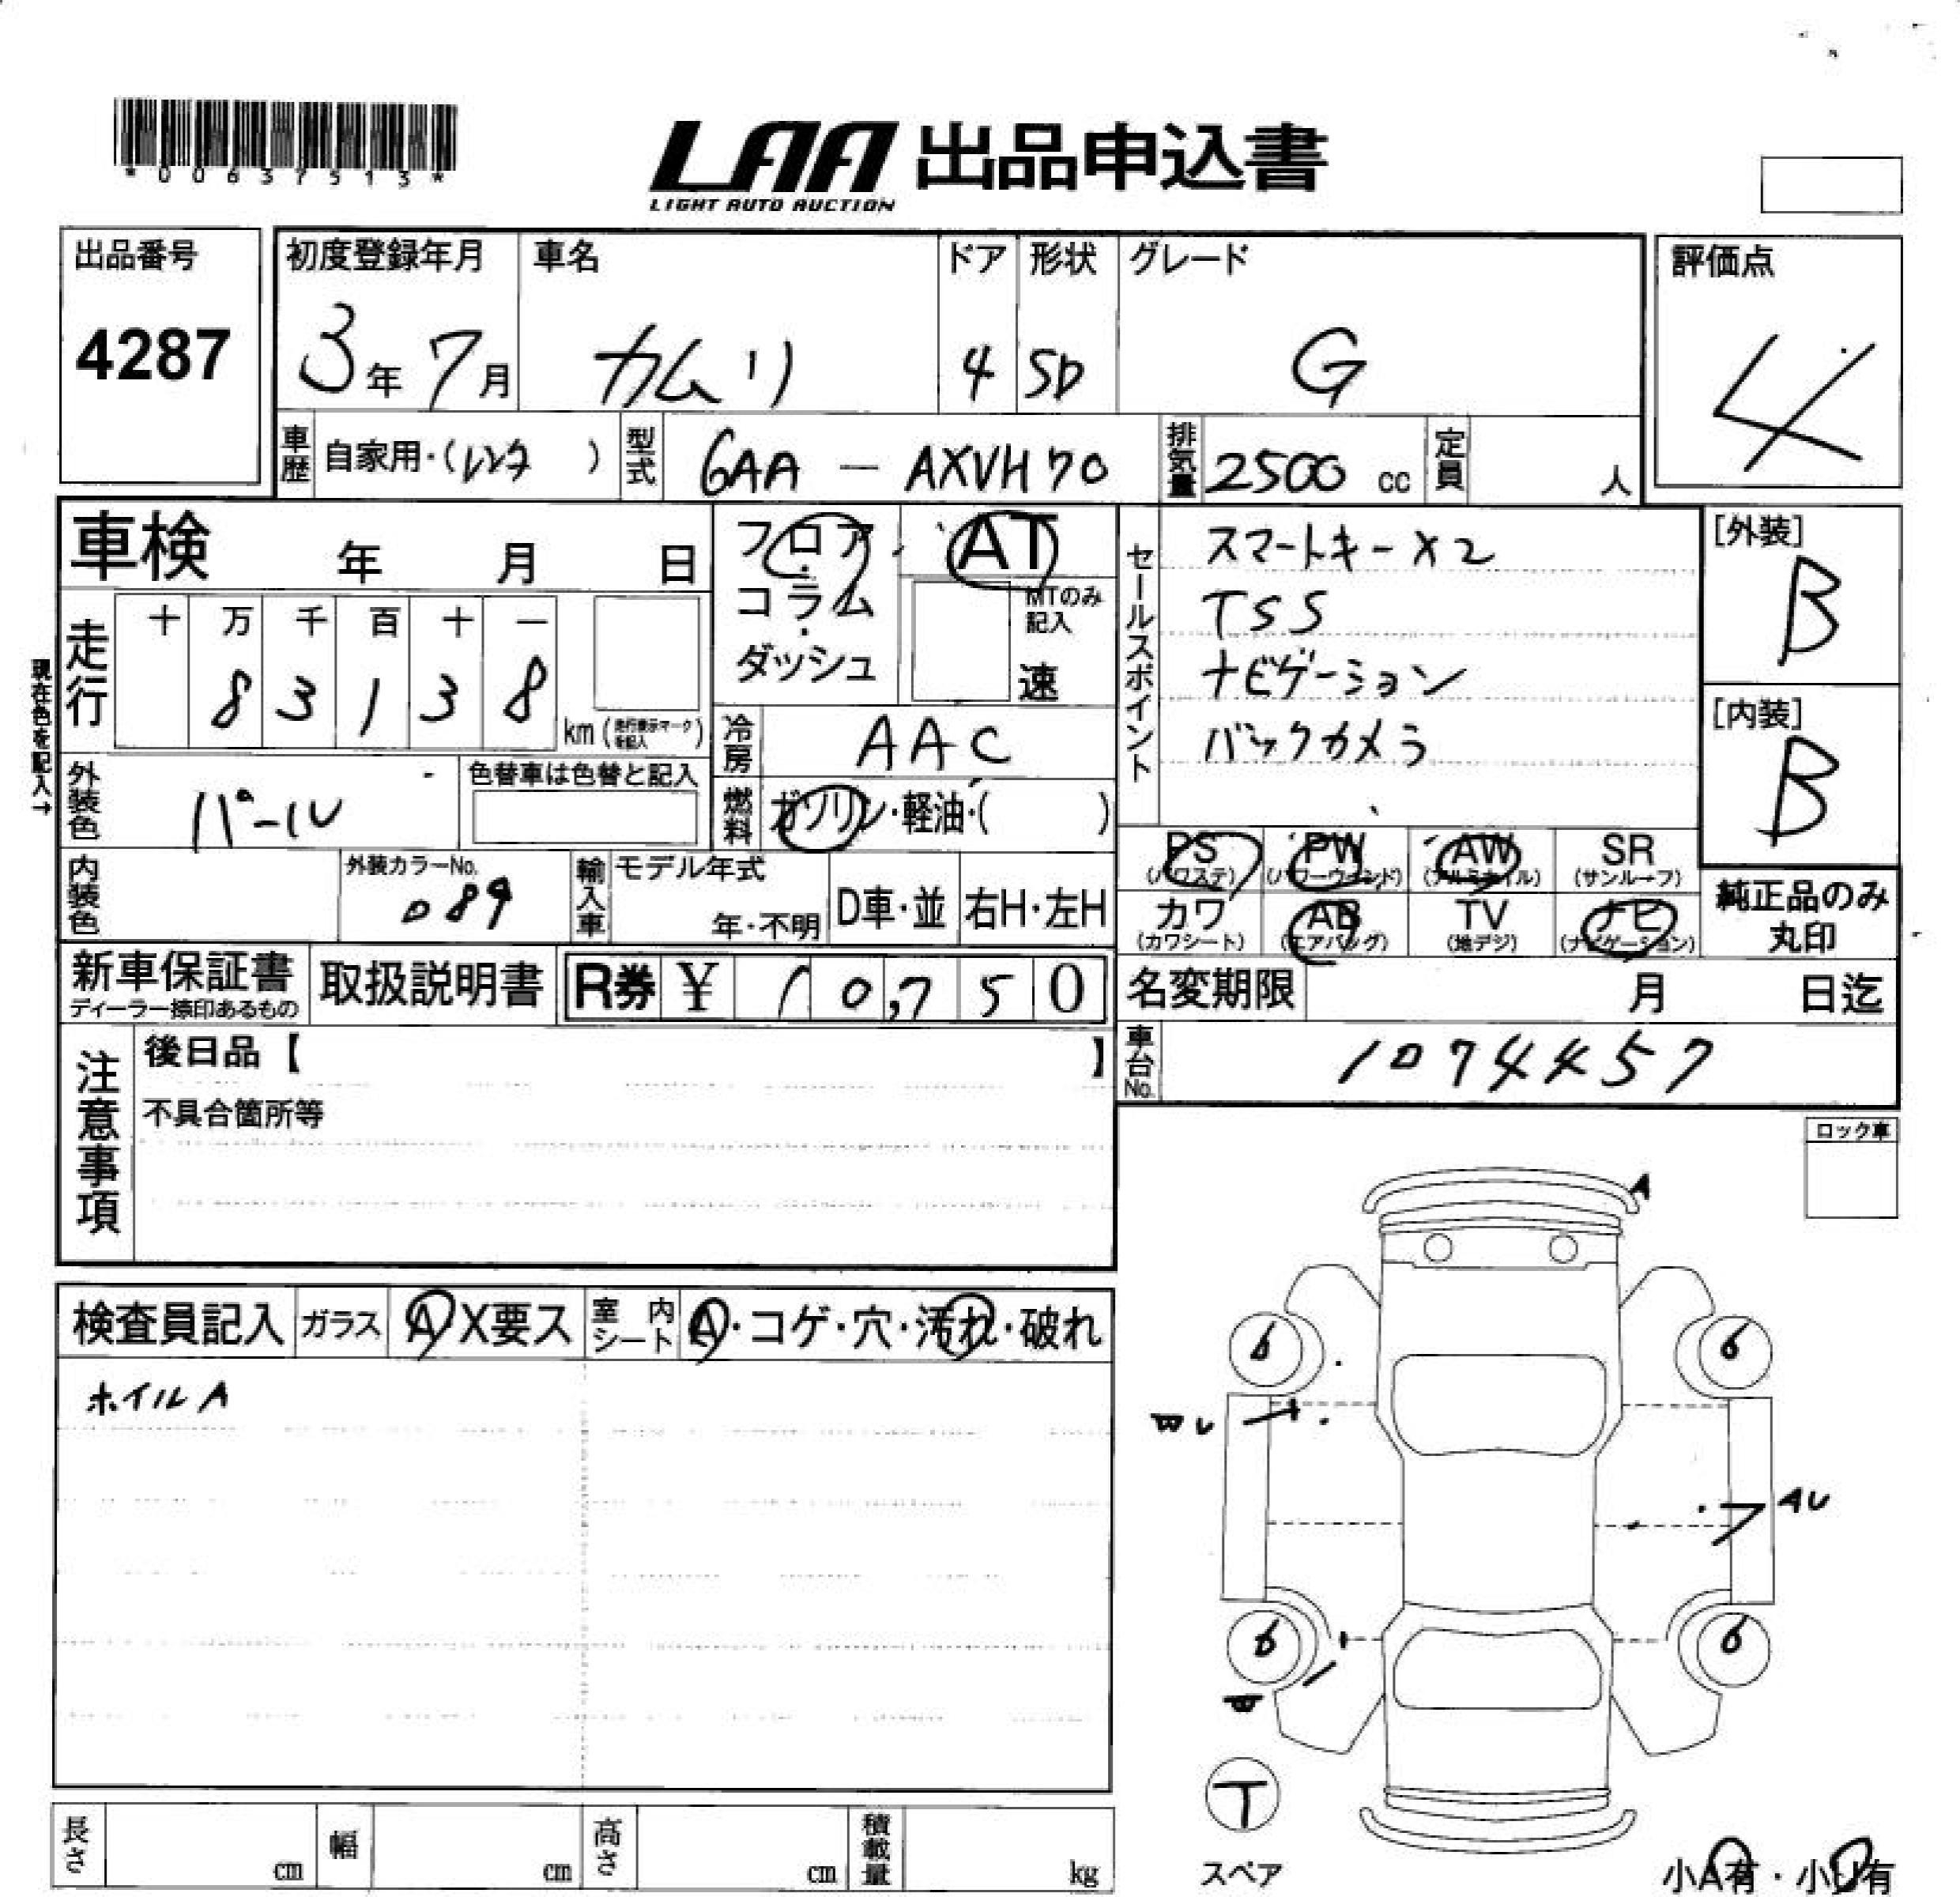 *00637513*
LAA 出品申込書
LIGHT AUTO AUCTION
出品番号
4287
初度登録年月
3年7月
車名
カムリ
ドア
4
形状
SD
グレード
G
評価点
4
車歴
自家用・(レンタ )
型式
6AA - AXVH70
排気量
2500 cc
定員
人
車検 年 月 日
走行
十 万 千 百 十 一
8 3 1 3 8
km (走行表示マークを記入)
現在色を記入→
フロア・
コラム・
ダッシュ
AT
MTのみ記入
速
冷房
AAC
燃料
ガソリン・軽油・( )
セールスポイント
スマートキー×2
TSS
ナビゲーション
バックカメラ
[外装]
B
[内装]
B
外装色
パール
色替車は色替と記入
内装色
外装カラーNo.
089
輸入車
モデル年式
年・不明
D車・並
右H・左H
PS
(パワステ)
PW
(パワーウィンド)
AW
(アルミホイル)
SR
(サンルーフ)
カワ
(カワシート)
AB
(エアバッグ)
TV
(地デジ)
ナビ
(ナビゲーション)
純正品のみ
丸印
新車保証書
ディーラー捺印あるもの
取扱説明書
R券 ¥ 10,750
名変期限 月 日迄
車台No.
1074457
注意事項
後日品【 】
不具合箇所等
ロック車
検査員記入
ガラス
A X要ス
室内シート
A・コゲ・穴・汚れ・破れ
ホイルA
A
6
6
WU
AU
6
6
W
T
スペア
小A有・小U有
長さ
cm
幅
cm
高さ
cm
積載量
kg